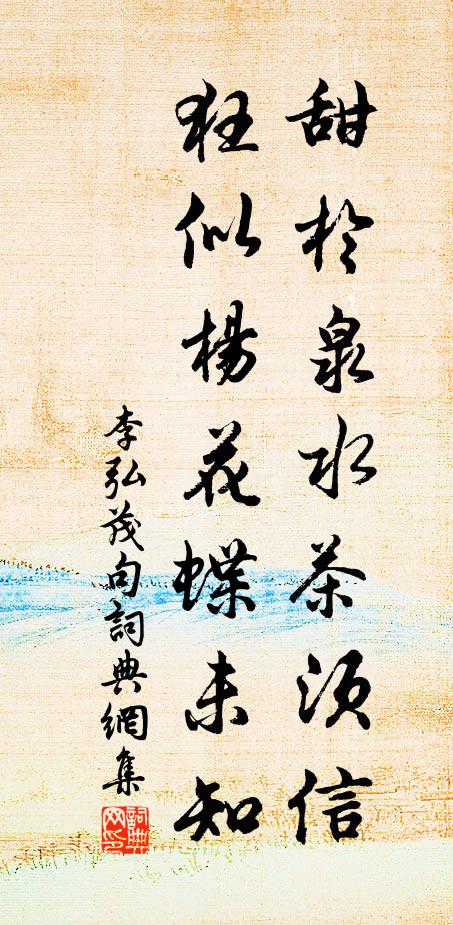 甜於泉水茶須信
狂似楊花蝶未知
李弘茂句詞典網集
詞典
网印